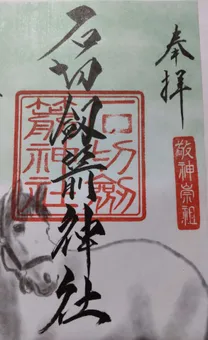 奉拝
敬神崇祖
石切劔箭神社
石切劔
箭神社